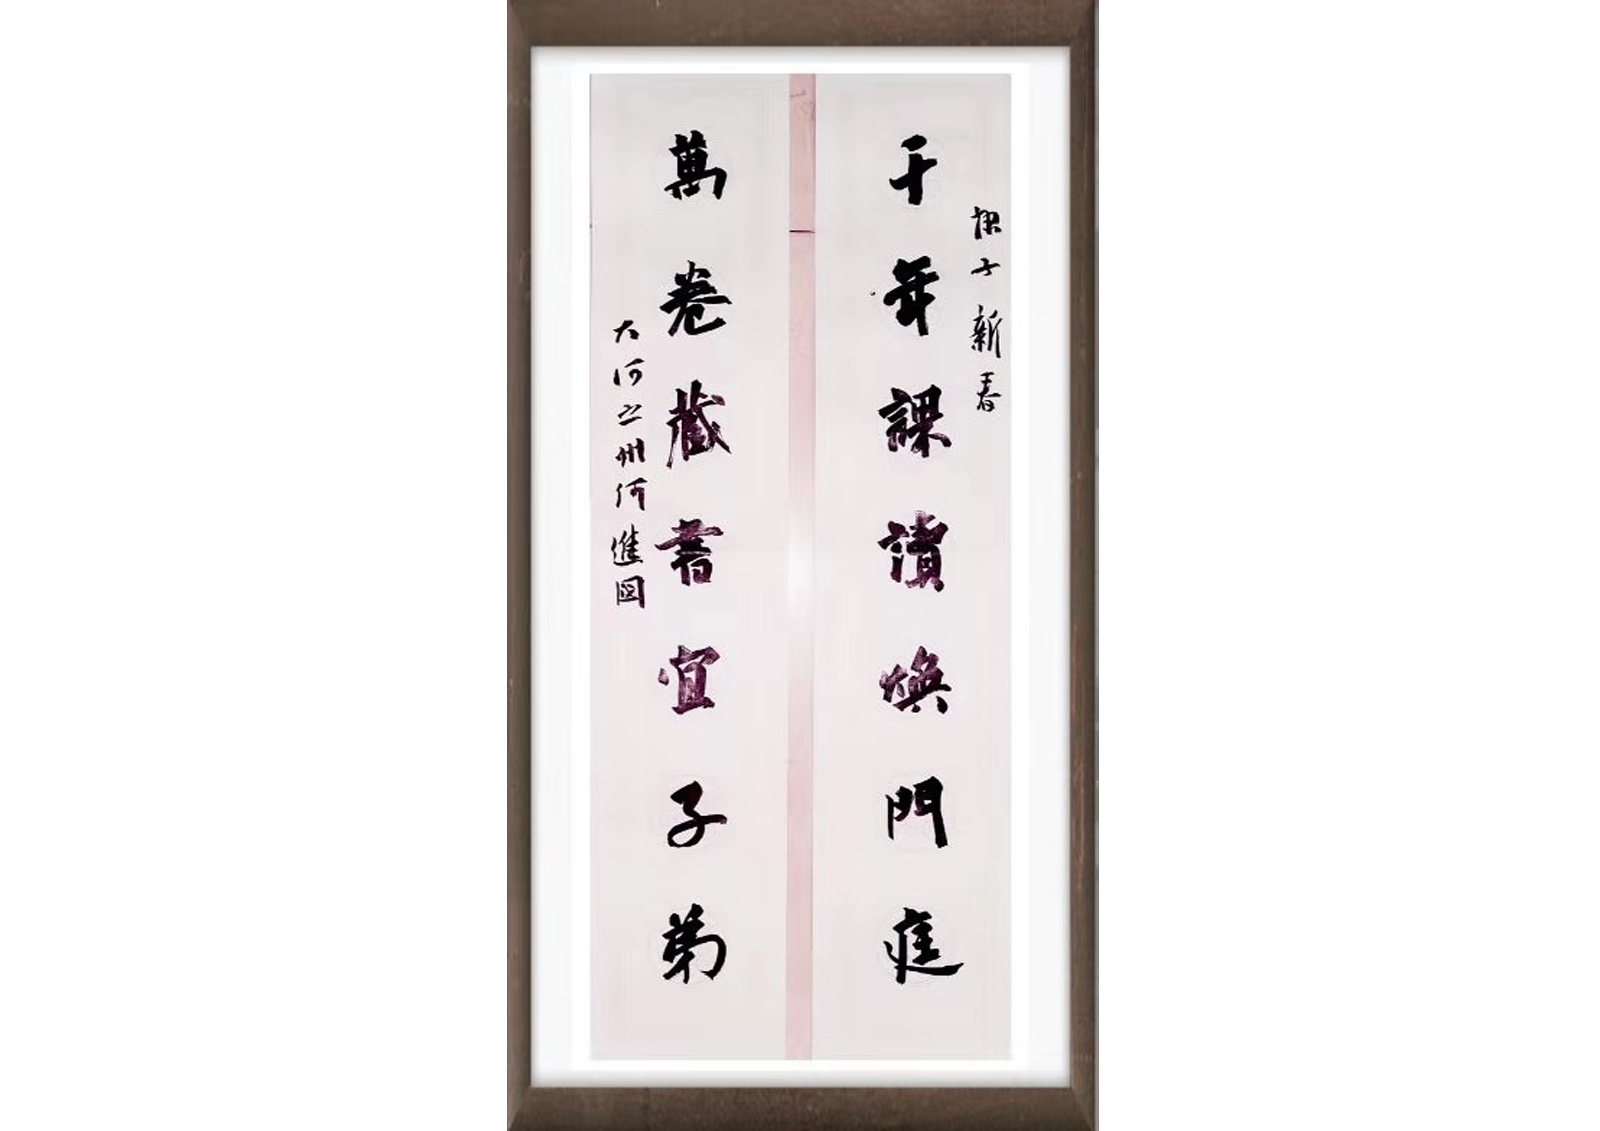 千年課讀煥門庭
新春
萬卷藏書宜子弟
大河之州何進